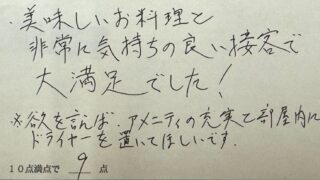 ・美味しいお料理と
非常に気持ちの良い接客で
大満足でした!
※欲を言えば、アメニティの充実と部屋内に
ドライヤーを置いてほしいです。
10点満点で 9 点